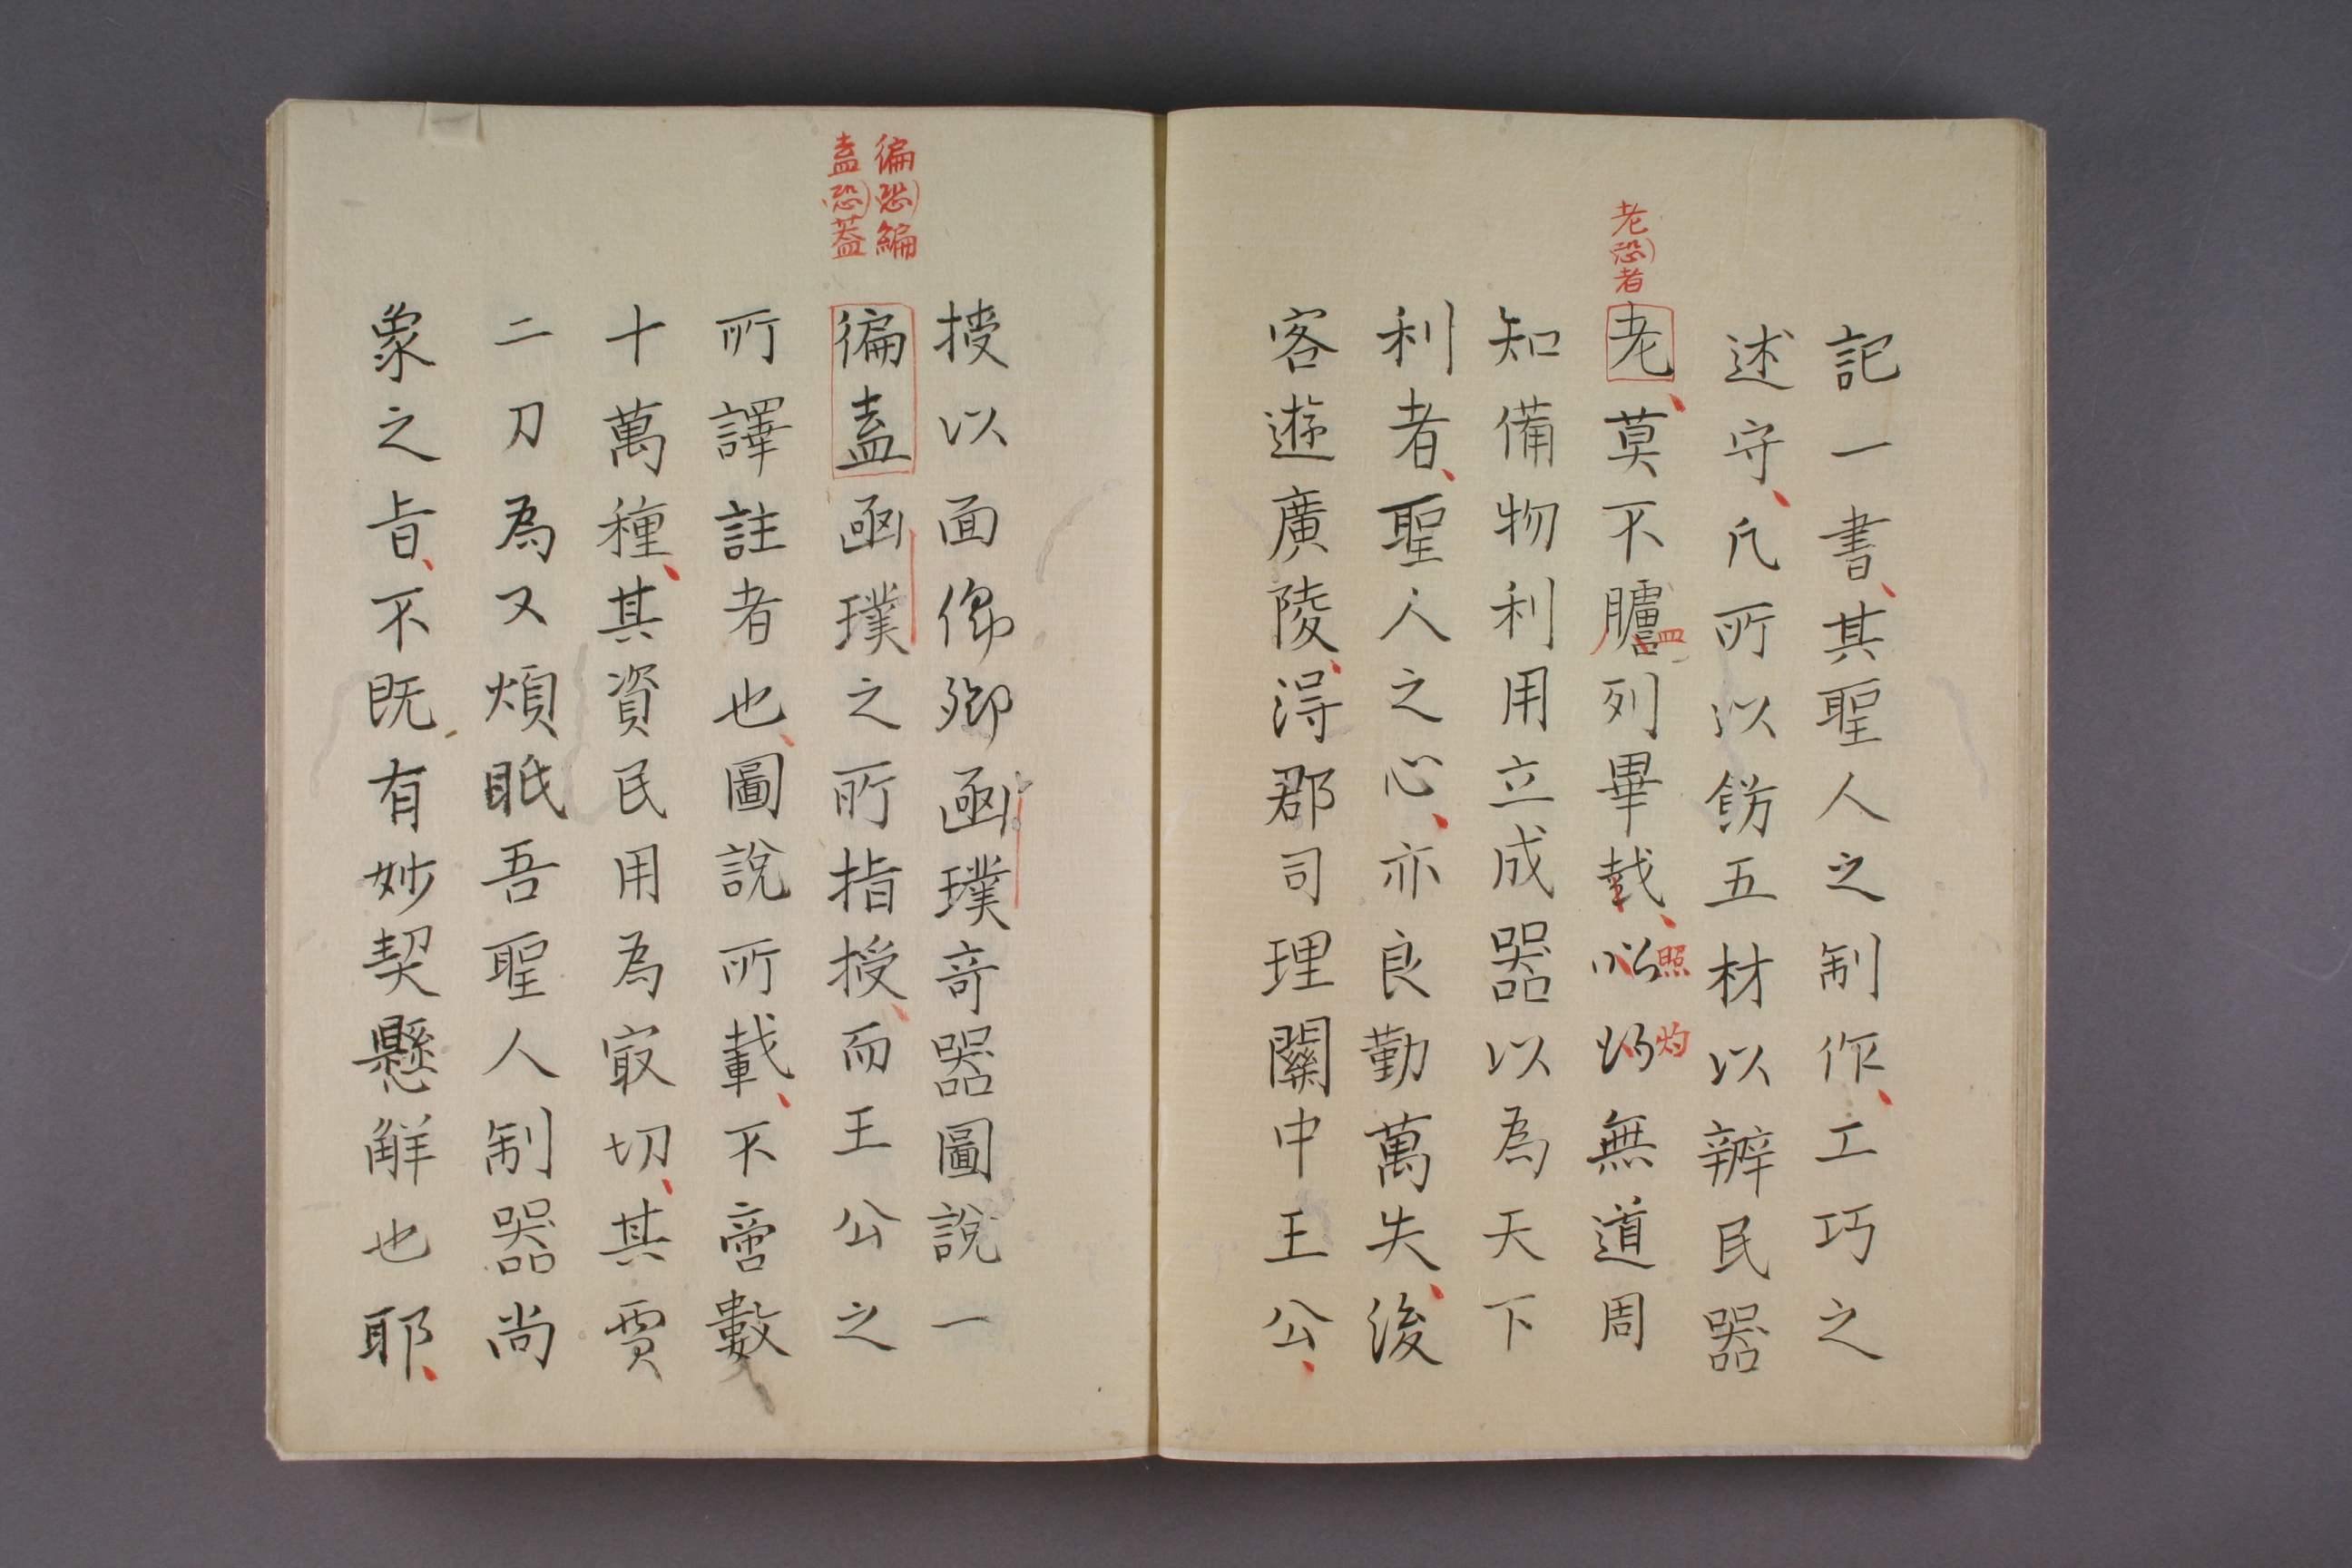 記一書其聖人之制作工巧之
述守凡所以飭五材以辨民器
老恐者
老莫不臚列畢載照灼無道周
知備物利用立成器以為天下
利者聖人之心亦良勤萬失後
客遊廣陵淂郡司理關中王公
授以面卿函璞奇器圖說一
徧恐編
盍恐蓋
徧盍函璞之所指授而王公之
所譯註者也圖說所載不啻數
十萬種其資民用為冣切其賈
二刀為又煩眂吾聖人制器尚
象之旨不既有妙契懸解也耶